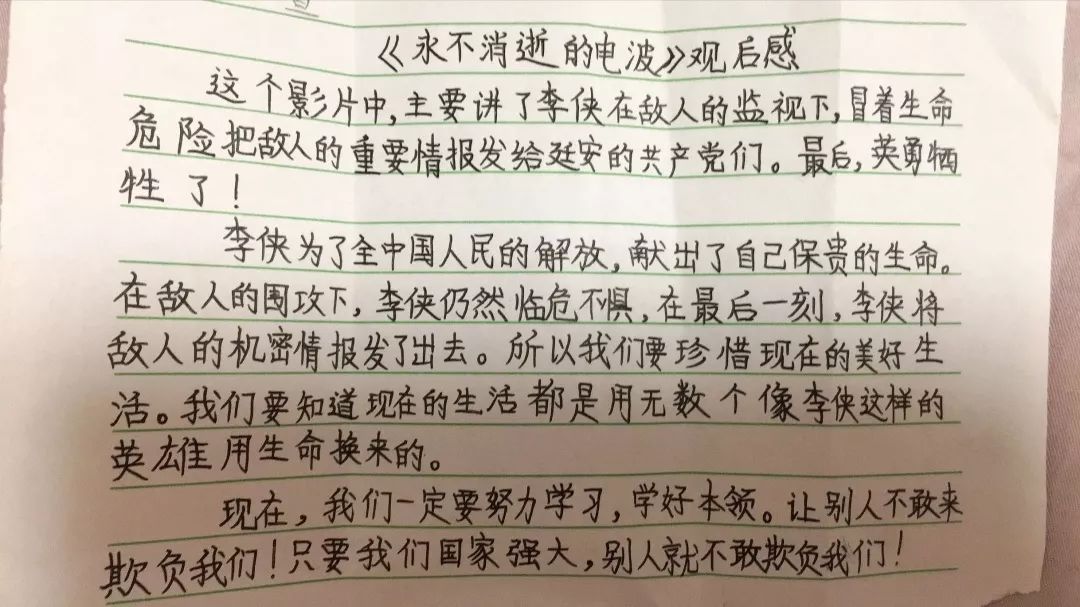 《永不消逝的电波》观后感
这个影片中,主要讲了李侠在敌人的监视下,冒着生命
危险把敌人的重要情报发给延安的共产党们。最后,英勇牺
牲了!
李侠为了全中国人民的解放,献出了自己保贵的生命。
在敌人的围攻下,李侠仍然临危不惧,在最后一刻,李侠将
敌人的机密情报发了出去。所以我们要珍惜现在的美好生
活。我们要知道现在的生活都是用无数个像李侠这样的
英雄用生命换来的。
现在,我们一定要努力学习,学好本领。让别人不敢来
欺负我们!只要我们国家强大,别人就不敢欺负我们!